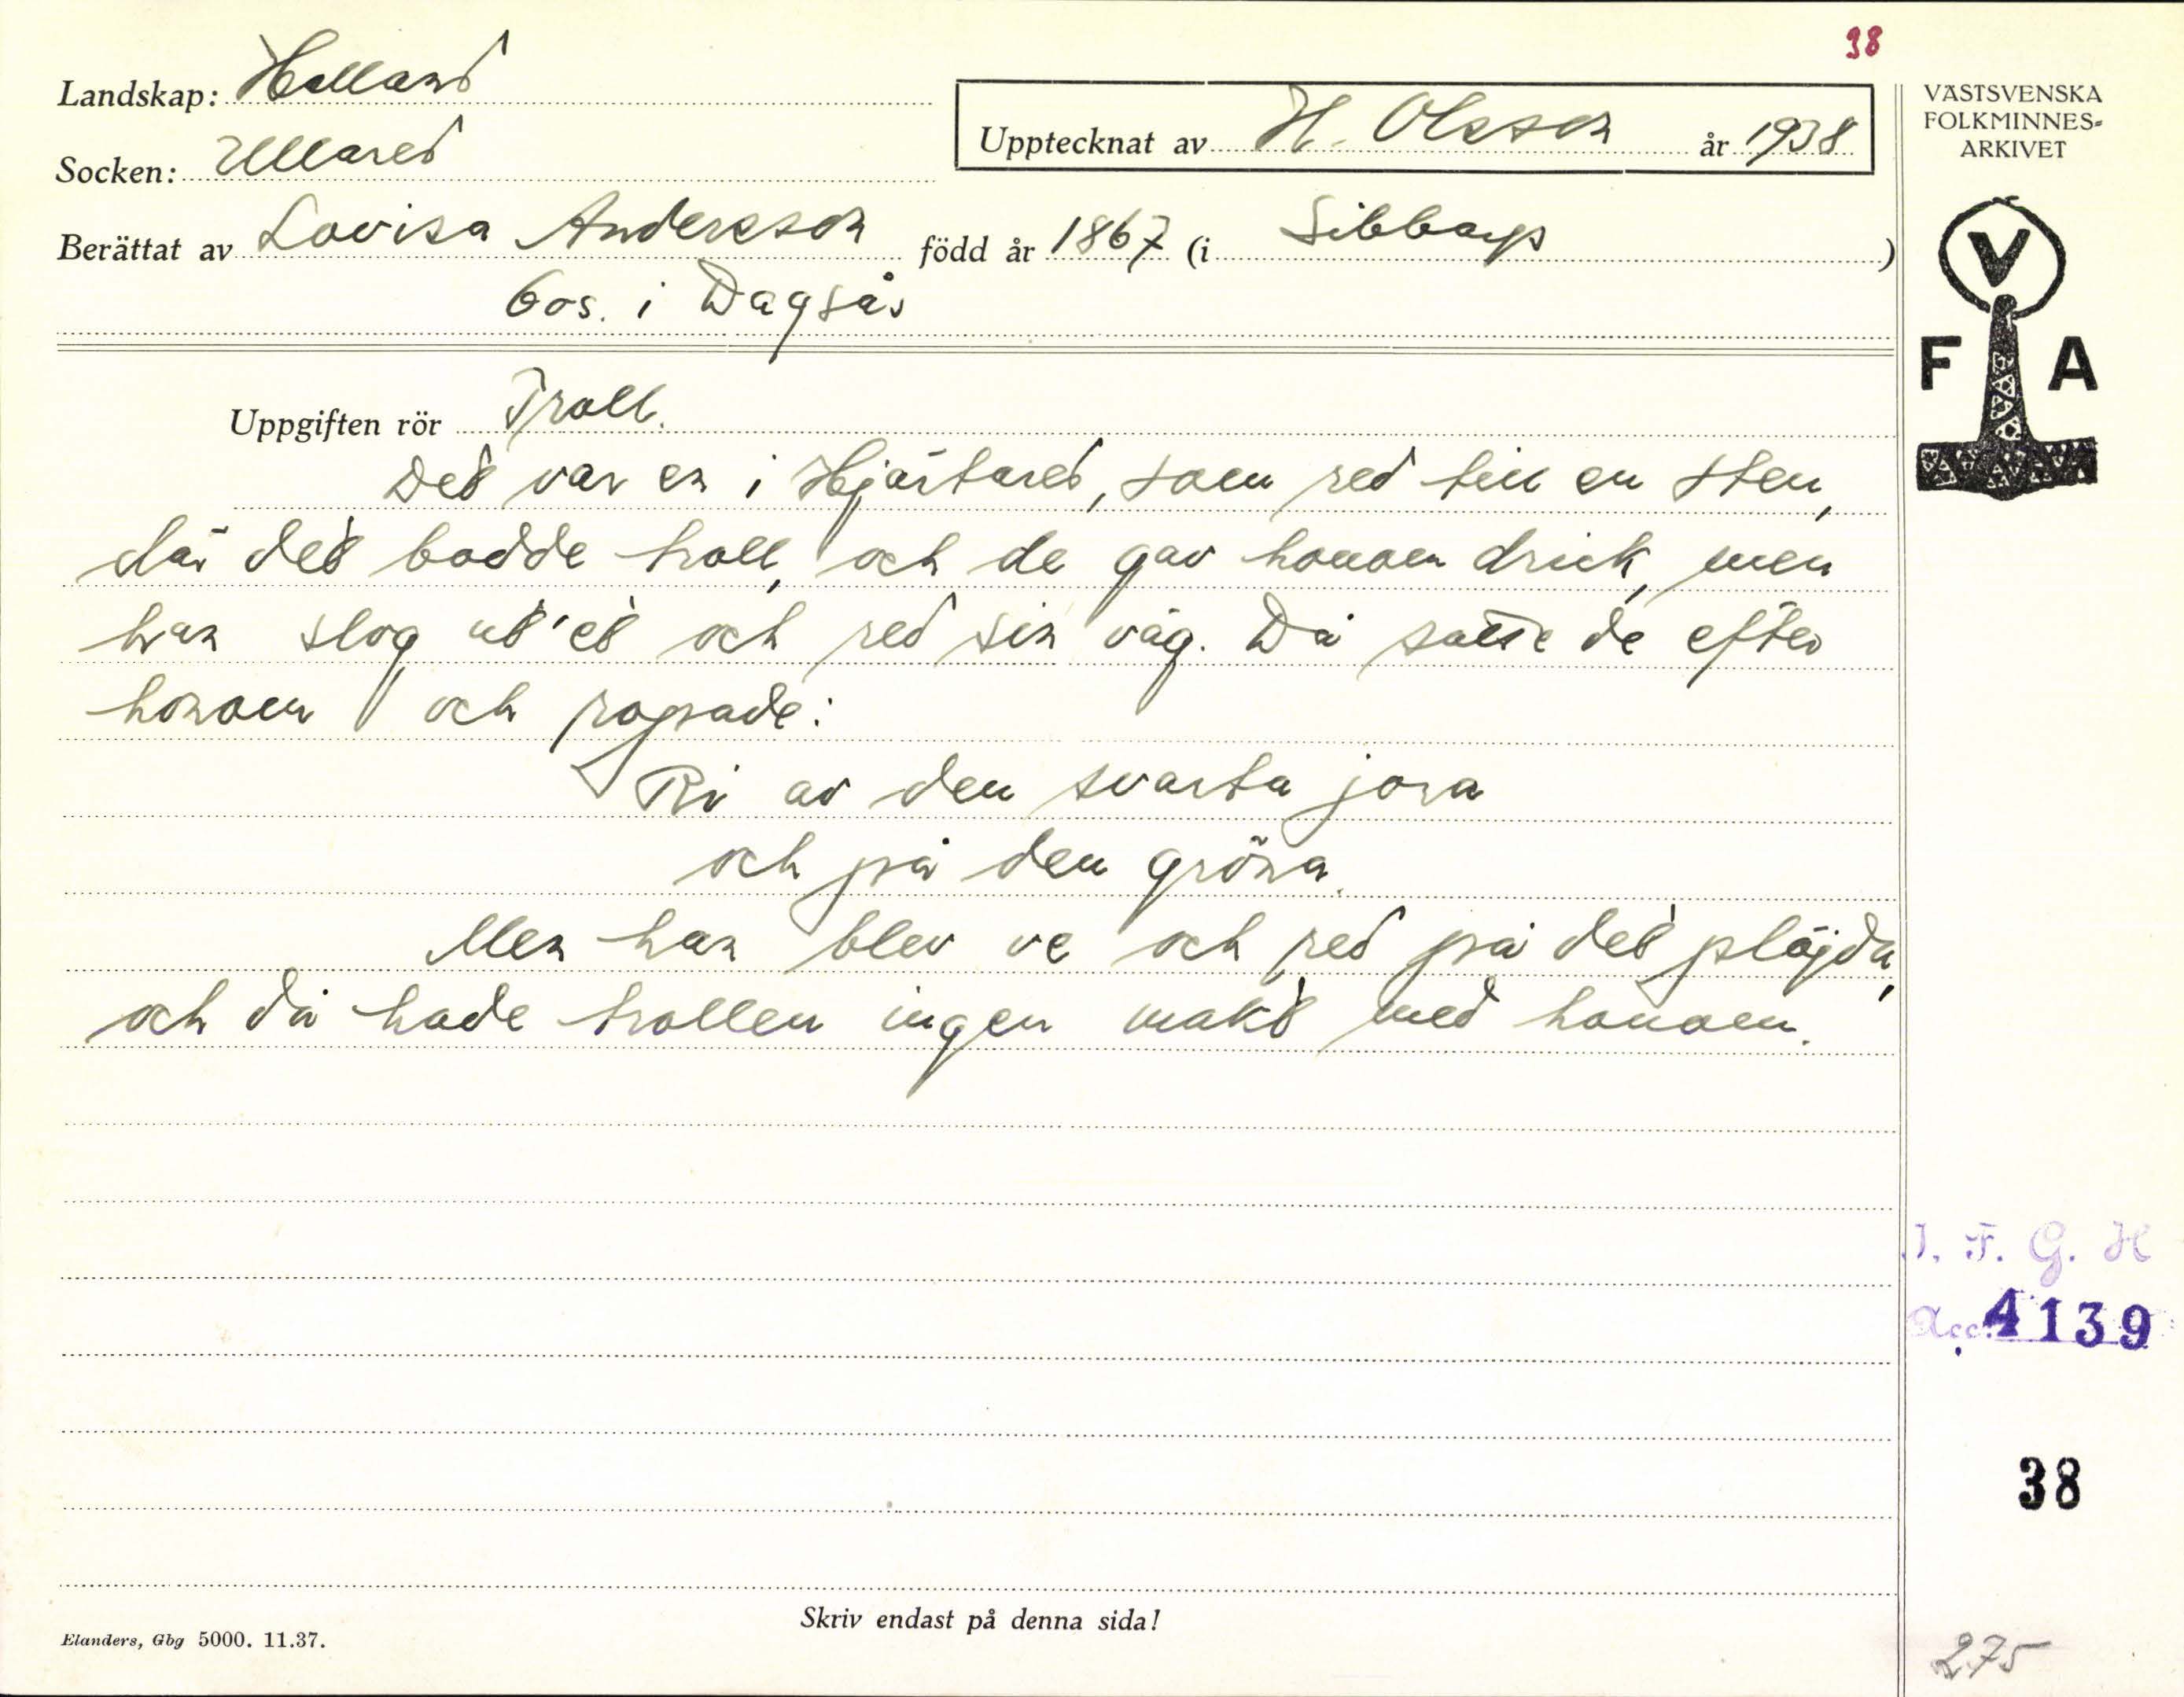 38
Landskap: Halland
Upptecknat av H. Olsson år 1938
Socken: Ullared
Berättat av Lovisa Andersson född år 1867 (i Sibbarp)
bos. i Dagsås
VÄSTSVENSKA
FOLKMINNES-
ARKIVET
V
F A
Uppgiften rör Troll.
Det var en i Hjärtared, som red till en sten,
där det bodde troll, och de gav honom drick, men
han slog ut'et och red sin väg. Då satte de efter
honom och ropade:
Ri av den svarta jora
och på den gröna.
Men han blev ve och red på det plöjda,
och då hade trollen ingen makt med honom.
I. F. G. H
Acc. 4139
38
Skriv endast på denna sida!
Elanders, Gbg 5000. 11.37.
275